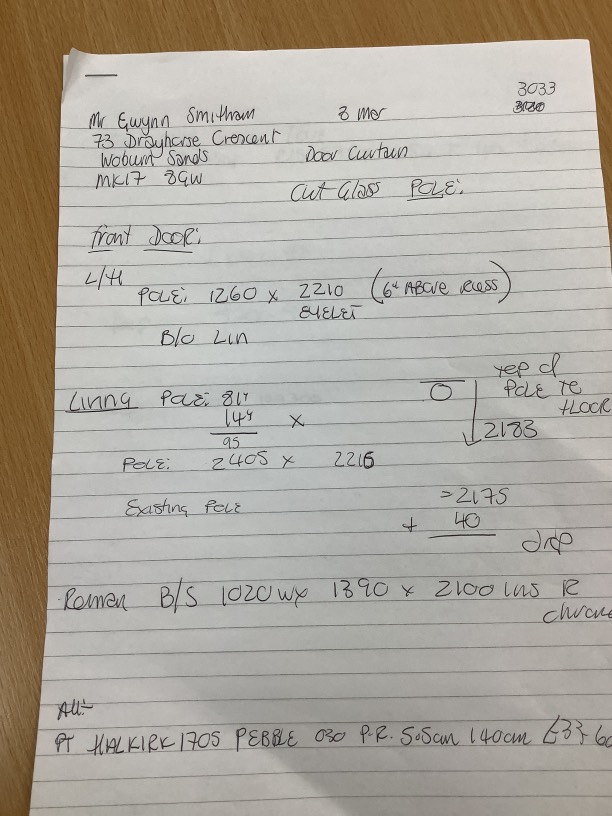 3033
Mr Gwynn Smitham
73 Drayhorse Crescent
Woburn Sands Door Curtain
MK17 8GW
Cut Glass POLE:
Front DOOR:
L/H
POLE: 1260 x 2210 (6" ABOVE recess)
EYELET
B/O Lin
Living POLE: 81"
14" x
95
POLE: 2405 x 2215
top of
POLE to
FLOOR
2183
Existing POLE
= 2175
+ 40
drop
Roman B/S 1020 w x 1390 x 2100 ins R
chrome
All:-
PT HALKIRK 1705 PEBBLE 030 P.R. 5.5cm 140cm